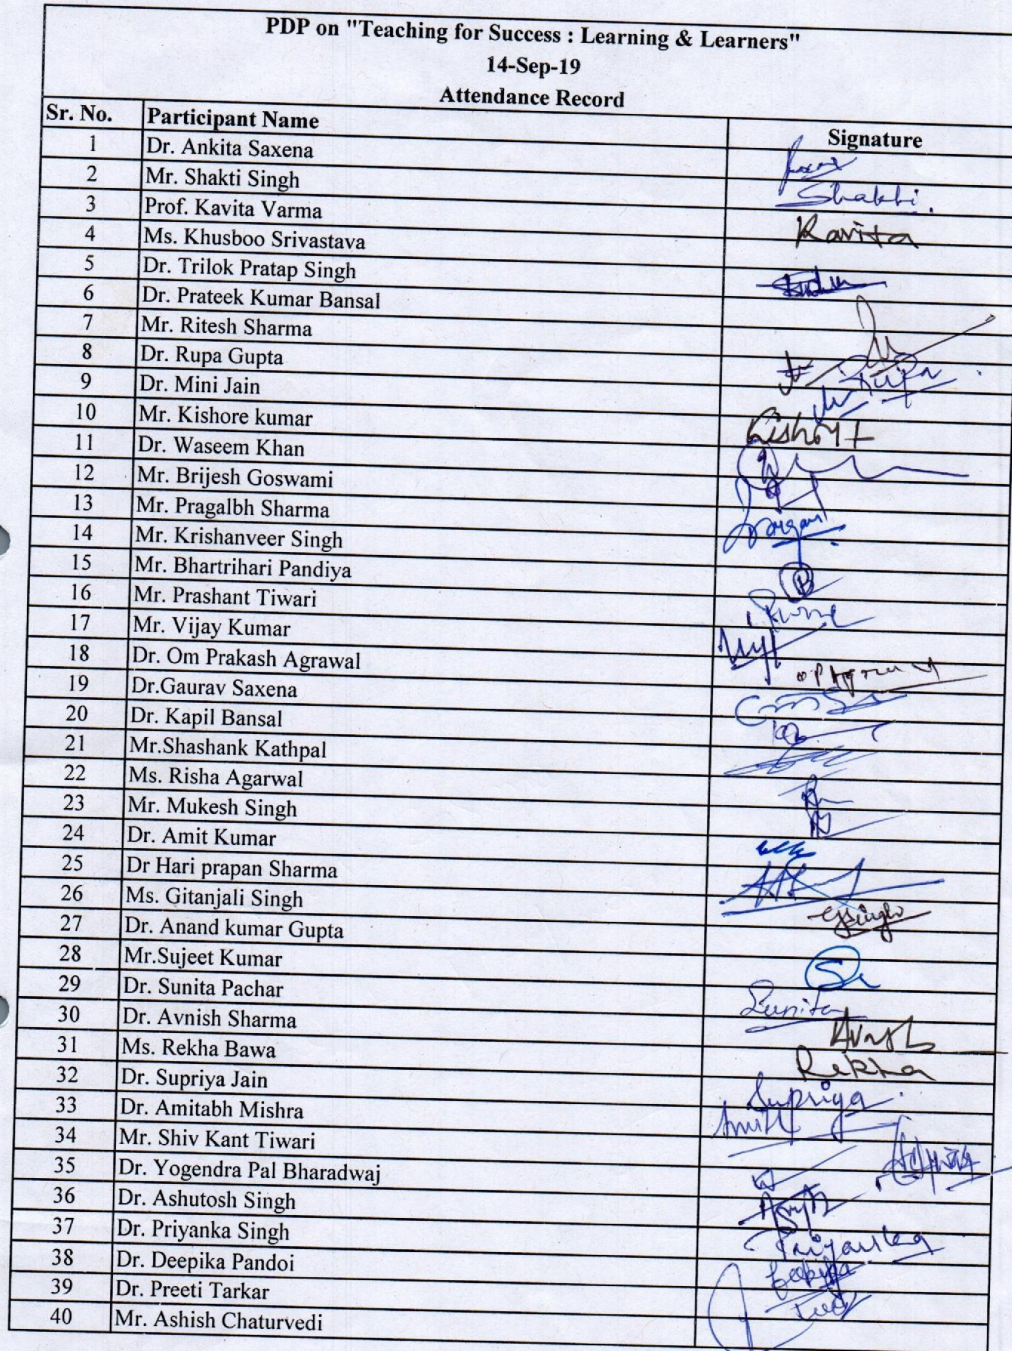 PDP on "Teaching for Success : Learning & Learners"
14-Sep-19
Attendance Record
Sr. No. Participant Name Signature
1 Dr. Ankita Saxena
2 Mr. Shakti Singh Shakti.
3 Prof. Kavita Varma Kavita
4 Ms. Khusboo Srivastava
5 Dr. Trilok Pratap Singh
6 Dr. Prateek Kumar Bansal
7 Mr. Ritesh Sharma
8 Dr. Rupa Gupta Rupa
9 Dr. Mini Jain
10 Mr. Kishore kumar Kishore
11 Dr. Waseem Khan
12 Mr. Brijesh Goswami
13 Mr. Pragalbh Sharma
14 Mr. Krishanveer Singh
15 Mr. Bhartrihari Pandiya
16 Mr. Prashant Tiwari
17 Mr. Vijay Kumar
18 Dr. Om Prakash Agrawal
19 Dr.Gaurav Saxena
20 Dr. Kapil Bansal
21 Mr.Shashank Kathpal
22 Ms. Risha Agarwal
23 Mr. Mukesh Singh
24 Dr. Amit Kumar
25 Dr Hari prapan Sharma
26 Ms. Gitanjali Singh
27 Dr. Anand kumar Gupta
28 Mr.Sujeet Kumar
29 Dr. Sunita Pachar Sunita
30 Dr. Avnish Sharma
31 Ms. Rekha Bawa Rekha
32 Dr. Supriya Jain Supriya
33 Dr. Amitabh Mishra
34 Mr. Shiv Kant Tiwari
35 Dr. Yogendra Pal Bharadwaj
36 Dr. Ashutosh Singh
37 Dr. Priyanka Singh Priyanka
38 Dr. Deepika Pandoi
39 Dr. Preeti Tarkar
40 Mr. Ashish Chaturvedi